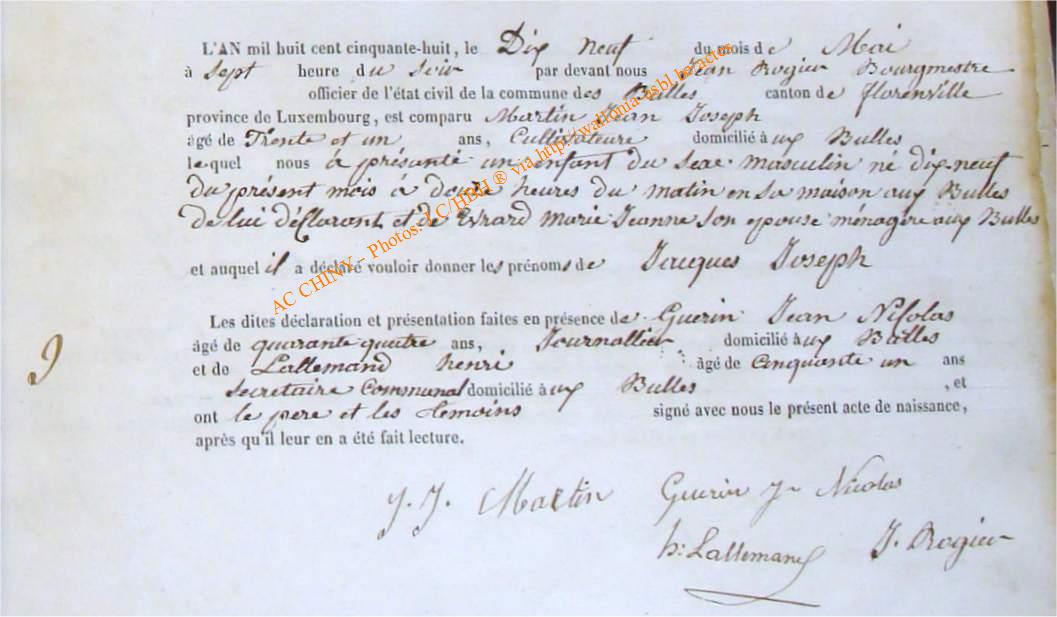 L'AN mil huit cent cinquante-huit, le Dix neuf du mois de Mai
à sept heure du soir par devant nous Jean Rogier Bourgmestre
officier de l'état civil de la commune des Bulles canton de florenville
province de Luxembourg, est comparu Martin Jean Joseph
âgé de Trente et un ans, Cultivateure domicilié à ux Bulles
lequel nous à présenté un enfant du sexe masculin né dix-neuf
du présent mois à douze heures du matin en sa maison aux Bulles
de lui déclarant et de Evrard Marie Jeanne son epouse ménagère aux Bulles
et auquel il a déclaré vouloir donner les prénoms de Jacques Joseph
Les dites déclaration et présentation faites en présence de Guerin Jean Nicolas
âgé de quarante quatre ans, Journallier domicilié à ux Bulles
et de Lallemand henri âgé de Cinquante un ans
secretaire Communal domicilié à ux Bulles , et
ont le pere et les temoins signé avec nous le présent acte de naissance,
après qu'il leur en a été fait lecture.
J. J. Martin Guerin Jn Nicolas
h: Lallemand J. Rogier
AC CHINY - Photos: LC/HBH ® via http://wallonia-asbl.be/actes